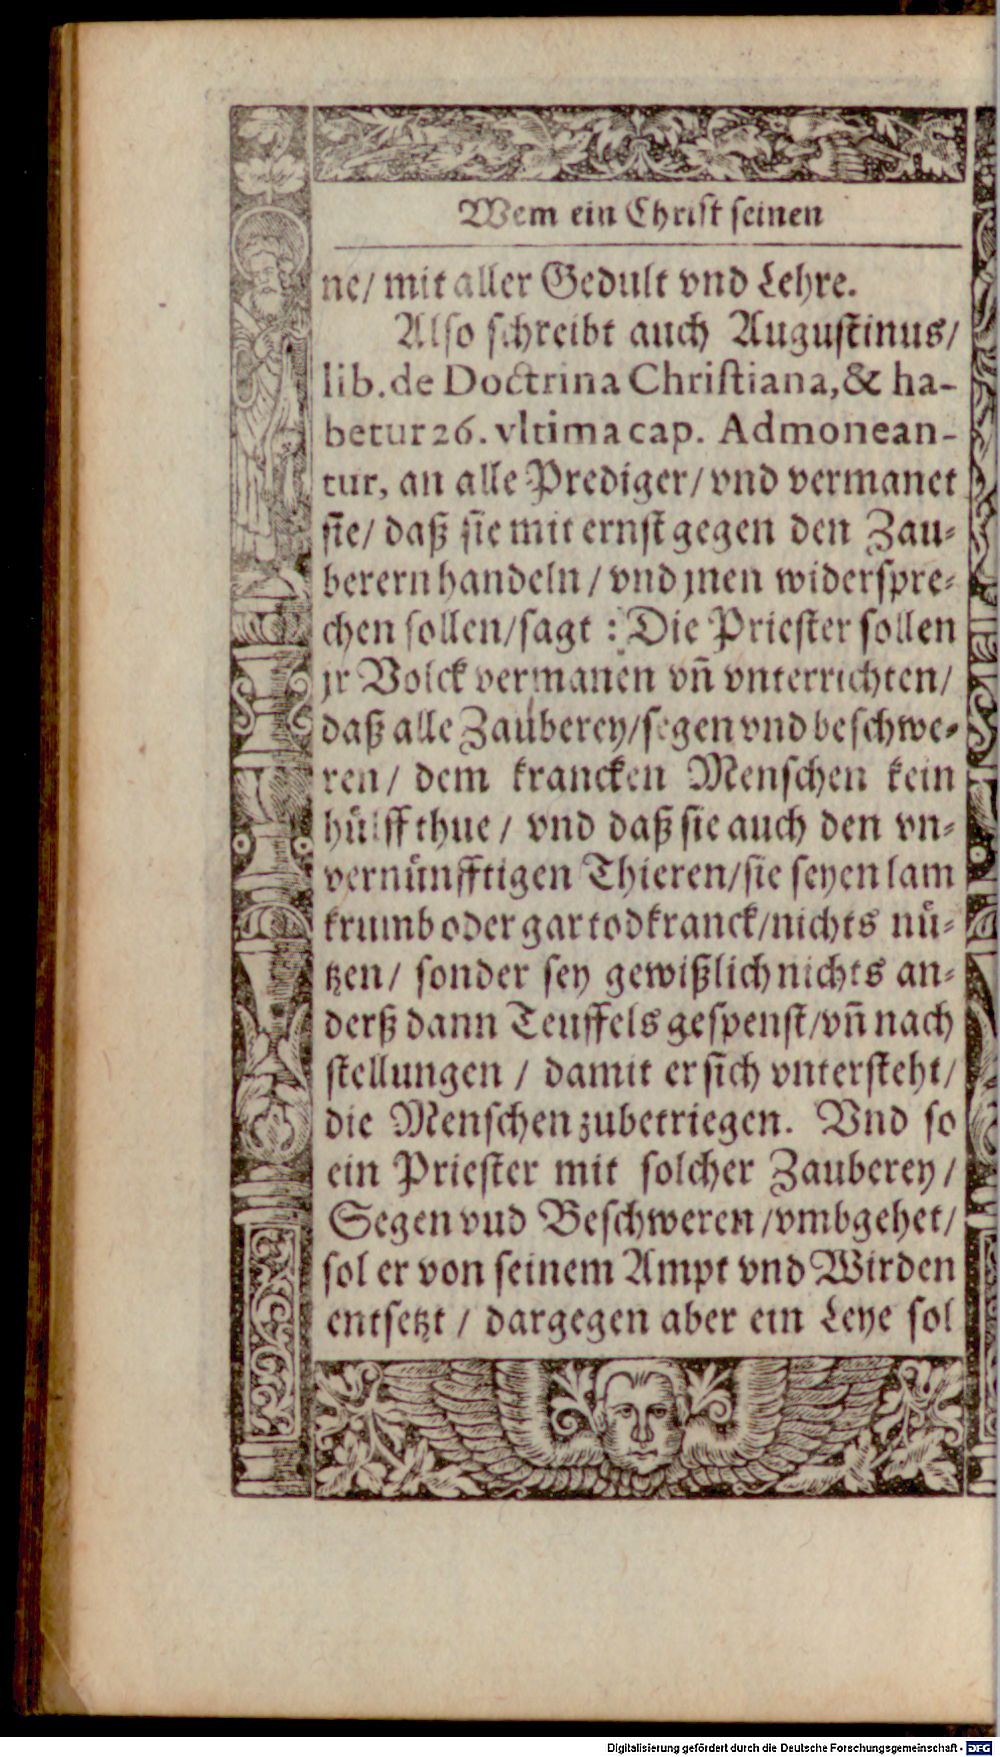 Wem ein Christ seinen
ne/ mit aller Gedult vnd Lehre.
Also schreibt auch Augustinus/
lib. de Doctrina Christiana, & ha-
betur 26. vltima cap. Admonean-
tur, an alle Prediger/ vnd vermanet
sie/ daß sie mit ernst gegen den Zau-
berern handeln/ vnd jnen widerspre-
chen sollen/ sagt: Die Priester sollen
jr Volck vermanen vñ vnterrichten/
daß alle Zauberey/ segen vnd beschwe-
ren/ dem krancken Menschen kein
hülff thue/ vnd daß sie auch den vn-
vernünfftigen Thieren/ sie seyen lam
krumb oder gar todkranck/ nichts nü-
tzen/ sonder sey gewißlich nichts an-
derß dann Teuffels gespenst/ vñ nach
stellungen/ damit er sich vntersteht/
die Menschen zubetriegen. Vnd so
ein Priester mit solcher Zauberey/
Segen vud Beschweren/ vmbgehet/
sol er von seinem Ampt vnd Wirden
entsetzt/ dargegen aber ein Leye sol
Digitalisierung gefördert durch die Deutsche Forschungsgemeinschaft - DFG